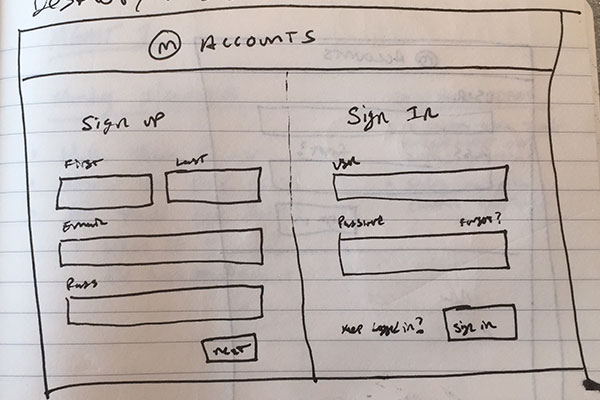 Desktop
m ACCOUNTS
Sign up
First Last
Email
Pass
next
Sign In
User
Password Forgot?
Keep logged in? Sign in